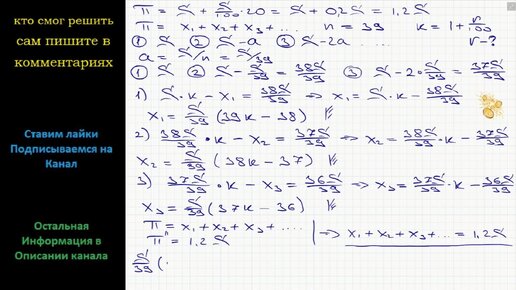 кто смог решить
сам пишите в
комментариях
Ставим лайки
Подписываемся на
Канал
Остальная
Информация в
Описании канала
П = S + S/100 · 20 = S + 0,2S = 1,2S
П = x₁ + x₂ + x₃ + .... n = 39 k = 1 + r/100
① S ② S - a ③ S - 2a ..... r - ?
a = S/n = S/39
① S ② S - S/39 = 38S/39 ③ S - 2·S/39 = 37S/39
1) S · k - x₁ = 38S/39 ⇒ x₁ = S · k - 38S/39
x₁ = S/39 (39k - 38)
2) 38S/39 · k - x₂ = 37S/39 ⇒ x₂ = 38S/39 · k - 37S/39
x₂ = S/39 (38k - 37)
3) 37S/39 · k - x₃ = 36S/39 ⇒ x₃ = 37S/39 · k - 36S/39
x₃ = S/39 (37k - 36)
П = x₁ + x₂ + x₃ + ....
П = 1,2S
⇒ x₁ + x₂ + x₃ + ... = 1,2S
S/39 (